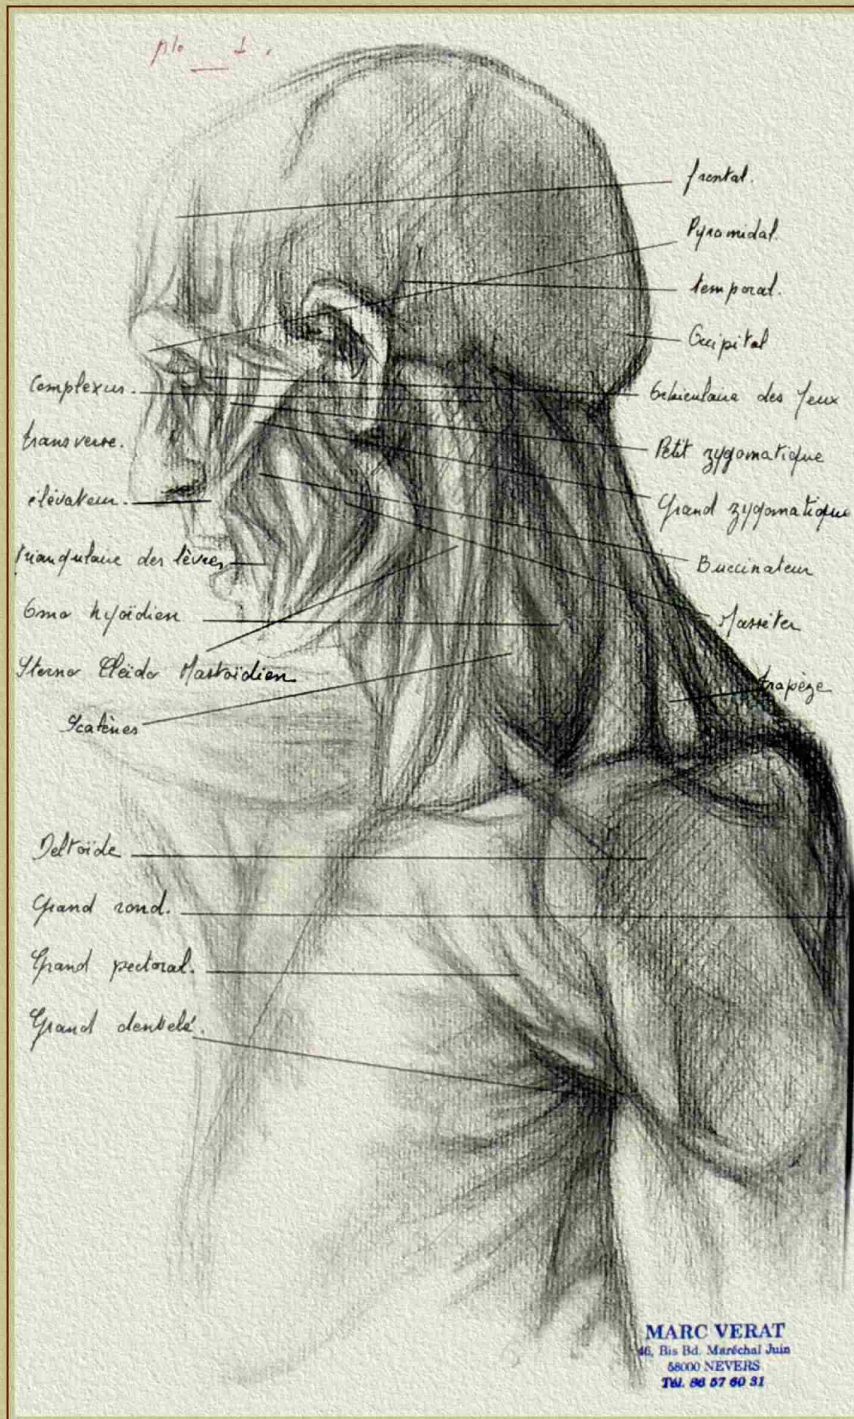 plo 1.
frontal.
Pyramidal.
temporal.
Occipital
Orbiculaire des Yeux
Petit zygomatique
Grand zygomatique
Buccinateur
Masséter
trapèze
Complexus.
transverse.
élévateur.
triangulaire des lèvres
Omo hyoïdien
Sterno Cleïdo Mastoïdien
Scalènes
Deltoïde
Grand rond.
Grand pectoral.
Grand dentelé.
MARC VERAT
46, Bis Bd. Maréchal Juin
58000 NEVERS
Tél. 86 57 60 31